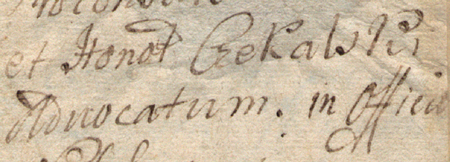 et Honot Czekalski
Advocatum. in Officio